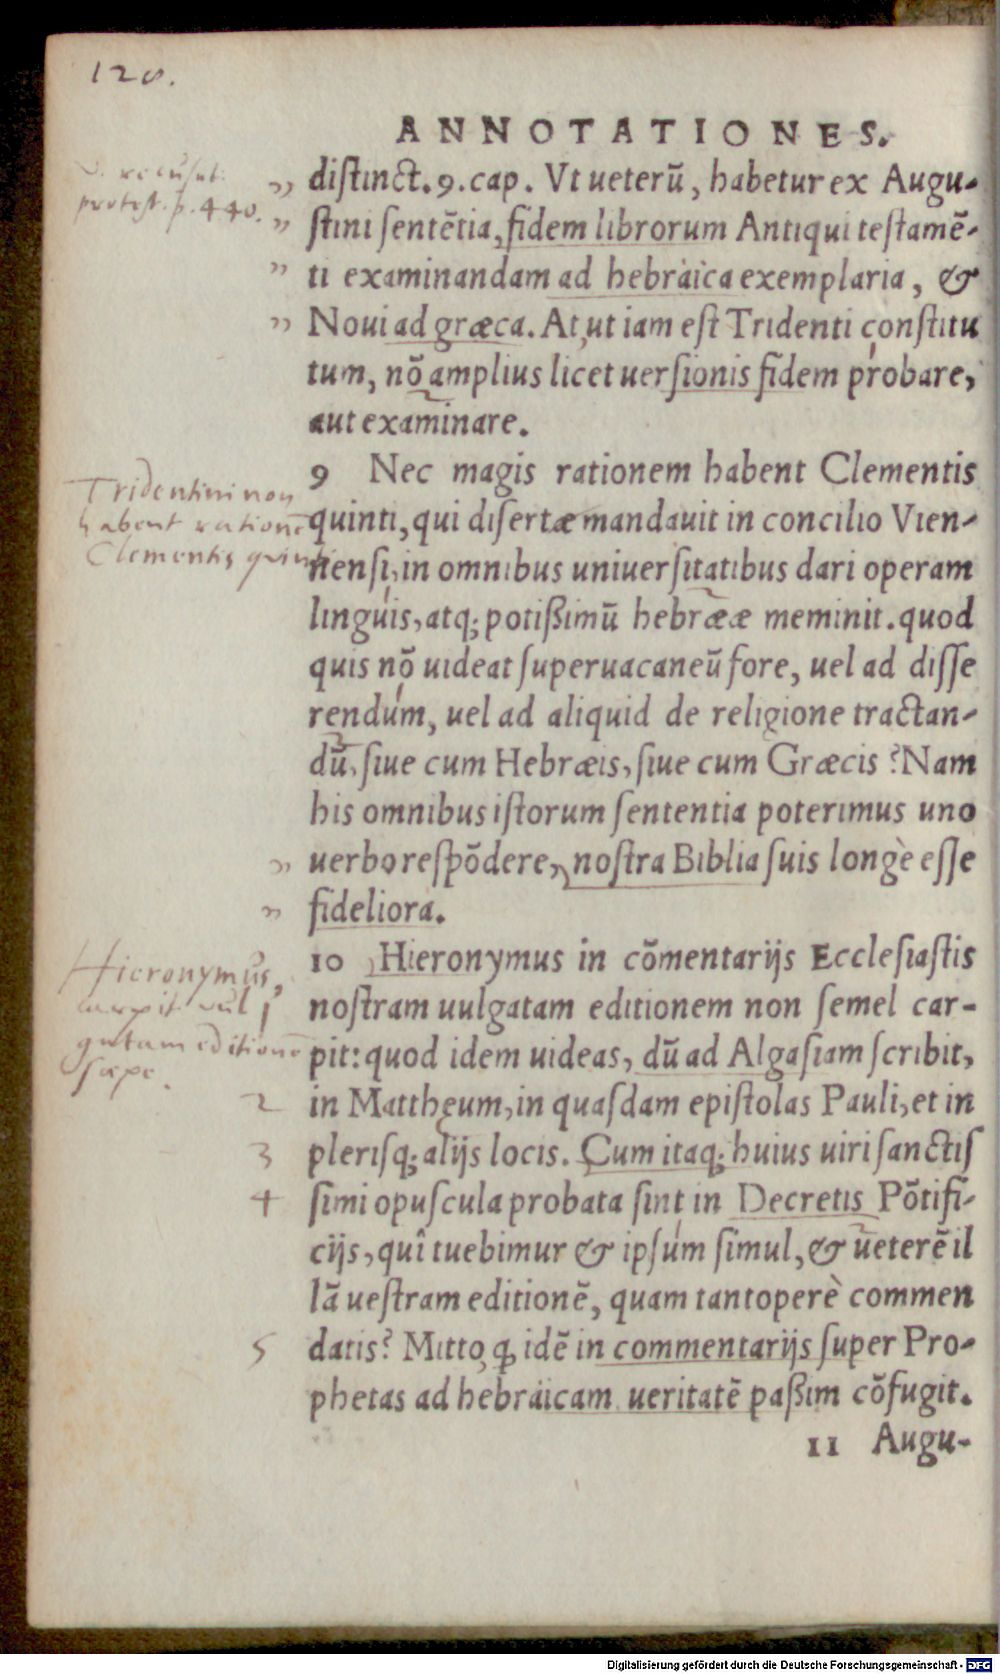 120.
ANNOTATIONES.
distinct. 9. cap. Vt ueterũ, habetur ex Augu-
stini sentẽtia, fidem librorum Antiqui testamẽ-
ti examinandam ad hebràica exemplaria, &
Noui ad græca. At, ut iam est Tridenti constitu
tum, nõ amplius licet uersionis fidem probare,
aut examinare.
Tridentini non
habent rationẽ
Clementis quinti
9 Nec magis rationem habent Clementis
quinti, qui disertæ mandauit in concilio Vien-
nensi, in omnibus uniuersitatibus dari operam
linguis, atq; potißimũ hebrææ meminit. quod
quis nõ uideat superuacaneũ fore, uel ad disse
rendum, uel ad aliquid de religione tractan-
dũ, siue cum Hebræis, siue cum Græcis? Nam
his omnibus istorum sententia poterimus uno
uerbo respõdere, nostra Biblia suis longè esse
fideliora.
Hieronymus
carpit vul
gatam editionẽ
sæpe.
10 Hieronymus in cõmentarijs Ecclesiastis
nostram uulgatam editionem non semel car-
pit: quod idem uideas, dũ ad Algasiam scribit,
2 in Matthęum, in quasdam epistolas Pauli, et in
3 plerisq; alijs locis. Cum itaq; huius uiri sanctis
4 simi opuscula probata sint in Decretis Põtifi-
cijs, quî tuebimur & ipsum simul, & ueterẽ il
lã uestram editionẽ, quam tantoperè commen
5 datis? Mitto, ꝙ idẽ in commentarijs super Pro-
phetas ad hebràicam ueritatẽ paßim cõfugit.
11 Augu-
Digitalisierung gefördert durch die Deutsche Forschungsgemeinschaft - DFG